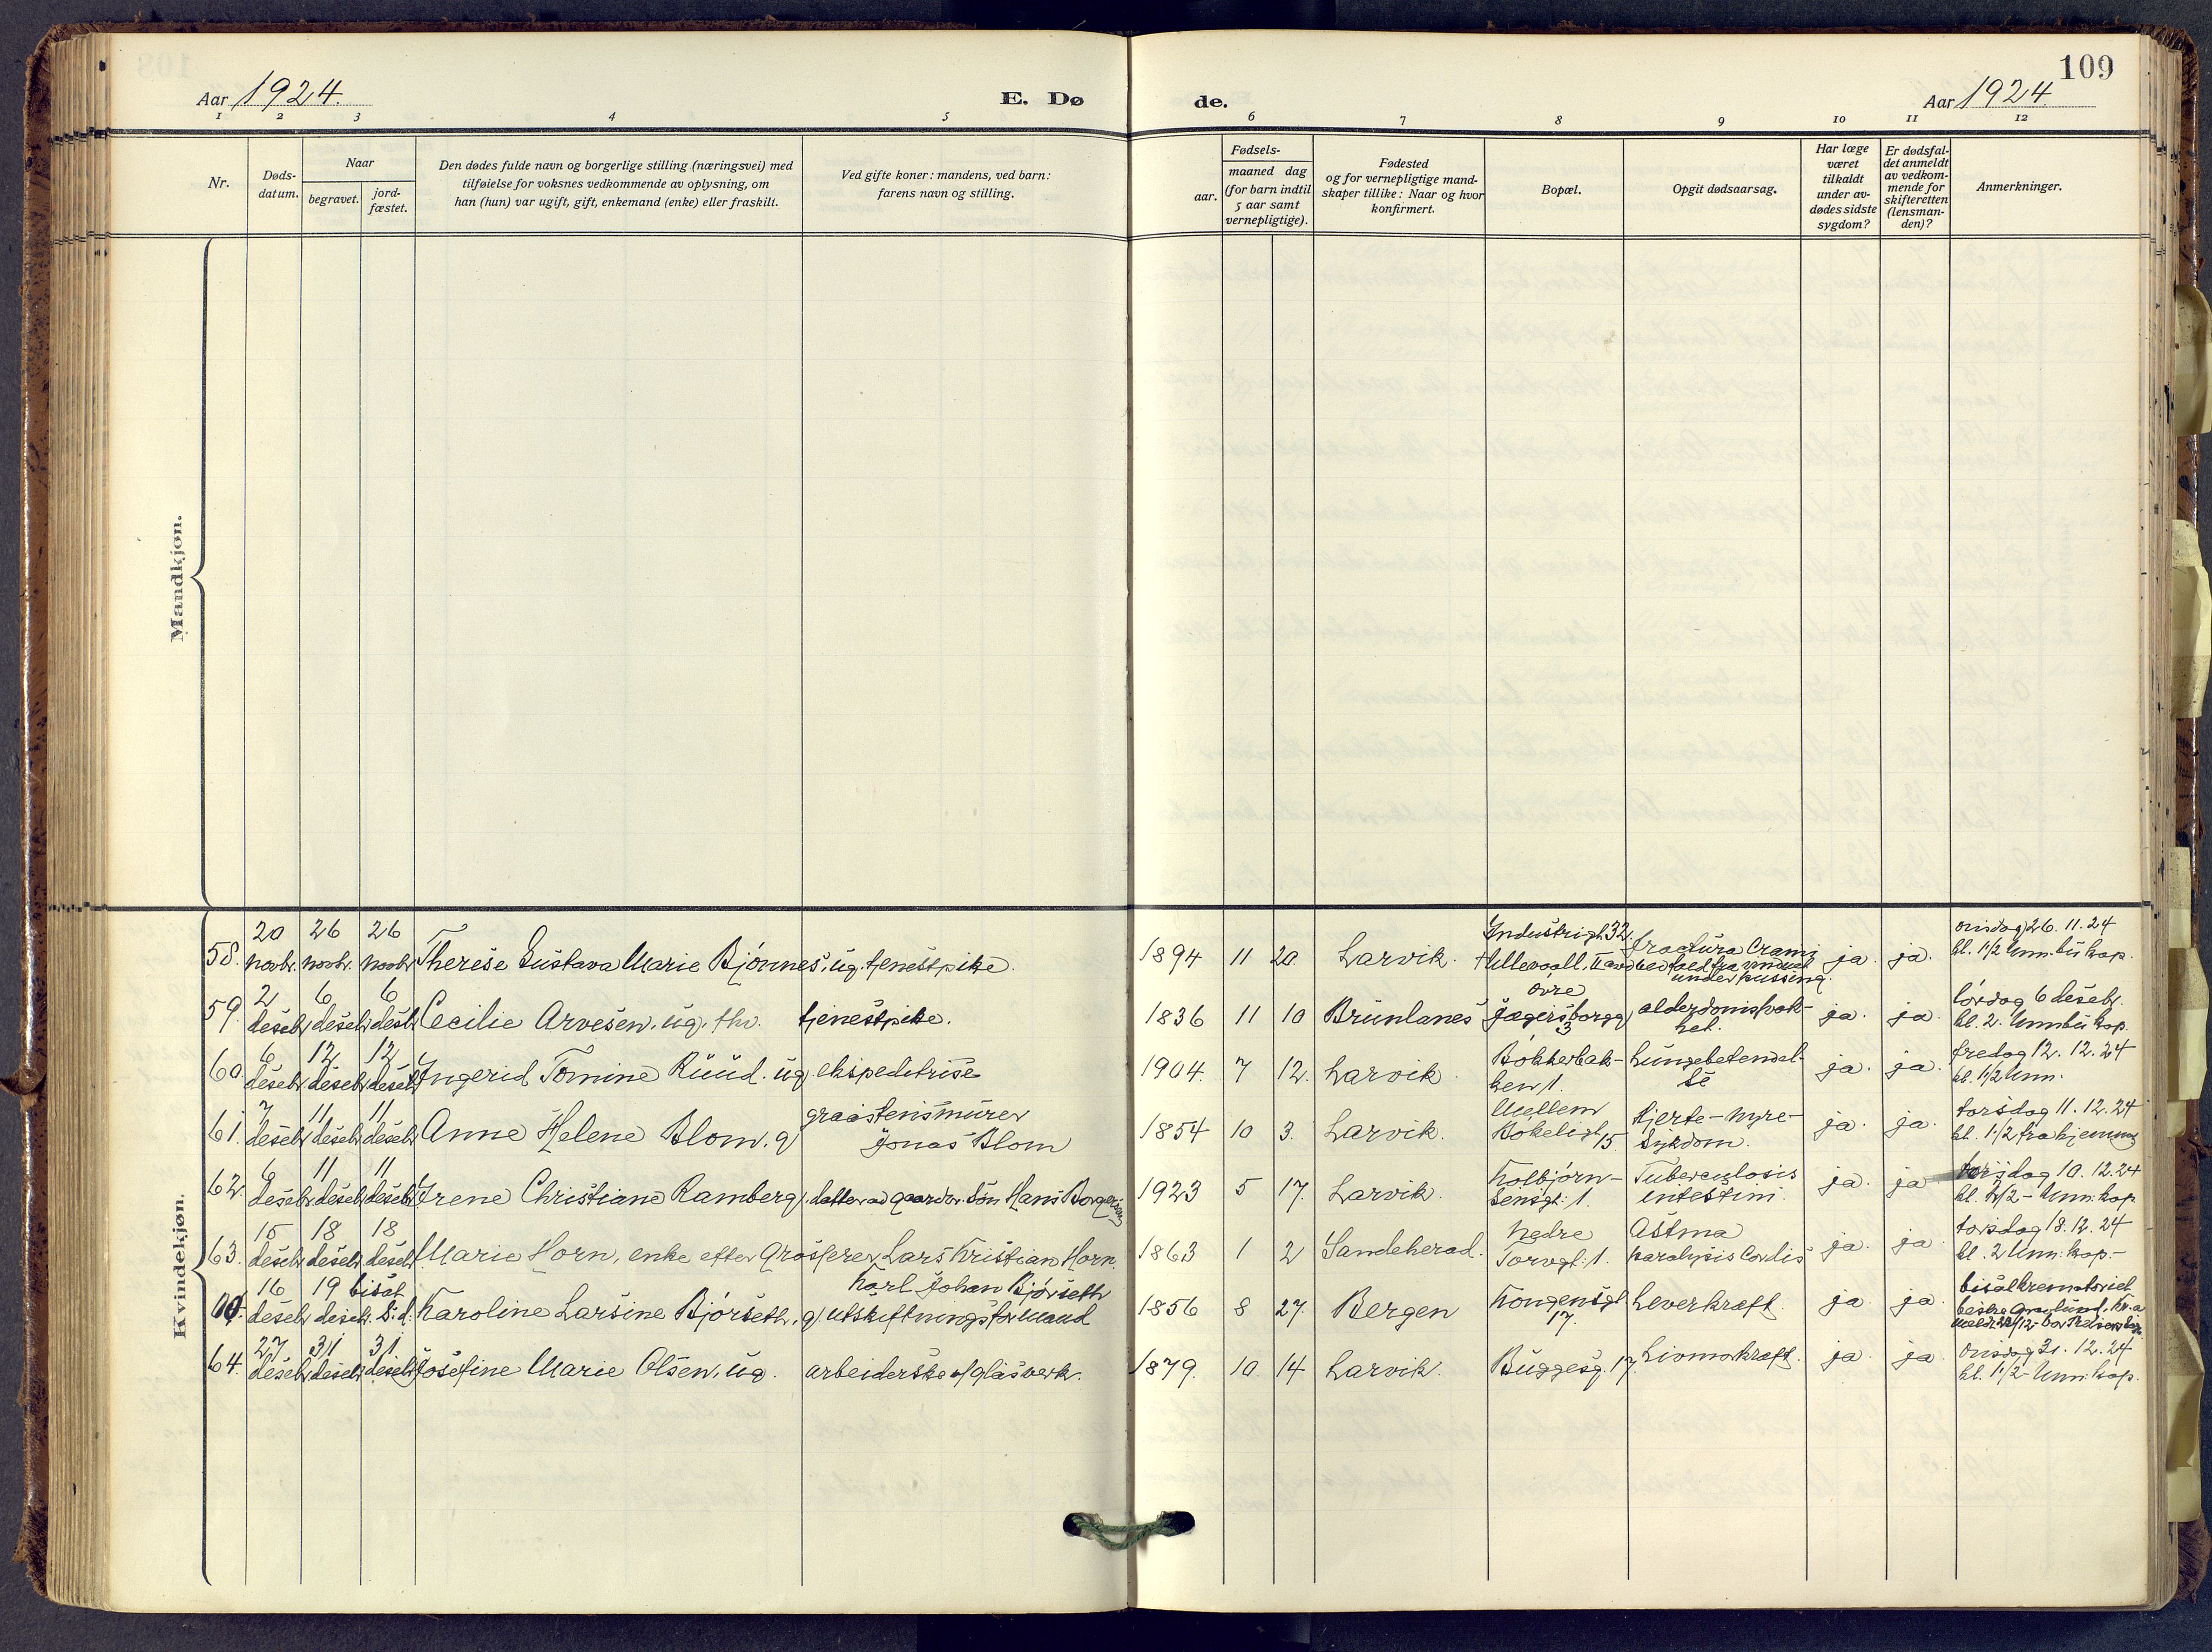 109
Aar 1924.
E. Dø
de.
Aar 1924.
1 2 3 4 5 6 7 8 9 10 11 12
Nr.
Døds-
datum.
Naar
begravet.
jord-
fæstet.
Den dødes fulde navn og borgerlige stilling (næringsvei) med
tilføielse for voksnes vedkommende av oplysning, om
han (hun) var ugift, gift, enkemand (enke) eller fraskilt.
Ved gifte koner: mandens, ved barn:
farens navn og stilling.
Fødsels-
aar.
maaned dag
(for barn indtil
5 aar samt
vernepligtige).
Fødested
og for vernepligtige mand-
skaper tillike: Naar og hvor
konfirmert.
Bopæl.
Opgit dødsaarsag.
Har læge
været
tilkaldt
under av-
dødes sidste
sygdom?
Er dødsfal-
det anmeldt
av vedkom-
mende for
skifteretten
(lensman-
den)?
Anmerkninger.
Mandkjøn.
Kvindekjøn.
58. 20 novbr. 26 novbr. 26 novbr. Therese Gustava Marie Bjønnes, ug. tjenestpike. 1894 11 20. Larvik. Industrigt. 32, Ullevaall. fractura Cranii ved fald fra vinduet under pussing. ja. ja. onsdag 26. 11. 24
kl. 1 1/2 kap.
59. 2 desebr. 6 desebr. 6 desbr. Cecilie Arvesen, ug. fhv. tjenestpike. 1836 11 10 Brunlanes øvre Jægersborgg. 3 alderdomssvak-
het. ja. ja. lørdag 6 desebr.
kl. 2. kap.
60. 6 desebr. 12 desebr. 12 desebr. Ingerid Tomine Ruud. ug. ekspeditrise 1904. 7 12. Larvik Bøkkerbak-
ken, 1. Lungebetendel-
se ja. ja. fredag 12. 12. 24
kl. 1 1/2
61. 7 desebr. 11 desebr. 11 desebr. Anne Helene Blom. g. graastensmurer
Jonas Blom 1854 10 3. Larvik. Mellem
Bøkeligt. 15 Hjerte- nyre-
sykdom. ja. ja. torsdag 11. 12. 24
kl. 1 1/2 fra hjemmet
62. 6 desebr. 11 desebr. 11 desebr. Irene Christiane Ramberg, datter av Hans Borgersen 1923 5 17. Larvik. Kolbjørn-
sensgt. 1. Tuberculosis
intestini. ja. ja 10. 12. 24
kap
63. 15 desebr. 18 desebr. 18 desebr. Marie Horn, enke efter grosserer Lars Kristian Horn. 1863 1 2 Sandeherad. Nedre
Torvgt. 1. Astma
paralysis Cordis ja. ja. torsdag 18. 12. 24
kl. 2 kap.-
16 desebr. 19 desebr. bisat s.d. Karoline Larsine Bjørseth. g. Karl Johan Bjørseth
utskiftningsformand 1856 8 27. Bergen Kongensgt
17. Leverkræft. ja ja. krematoriet
64. 27 desebr. 31 desebr. 31 desebr. Josefine Marie Olsen, ug. arbeiderske v/ glasverk. 1879. 10. 14 Larvik. Buggesg. 17. ja ja onsdag 31. 12. 24
kl. 1 1/2 kap.